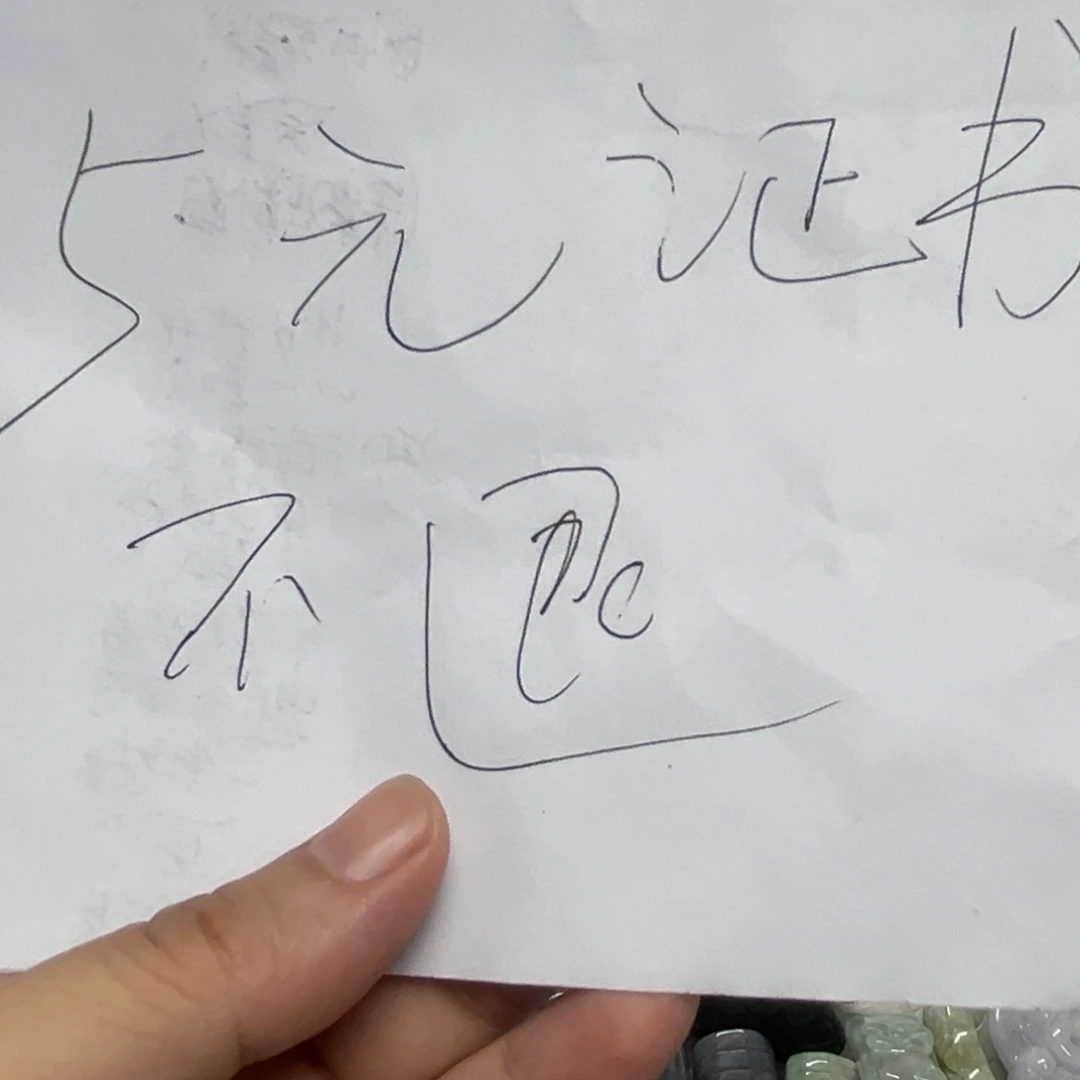 5元证书
不退